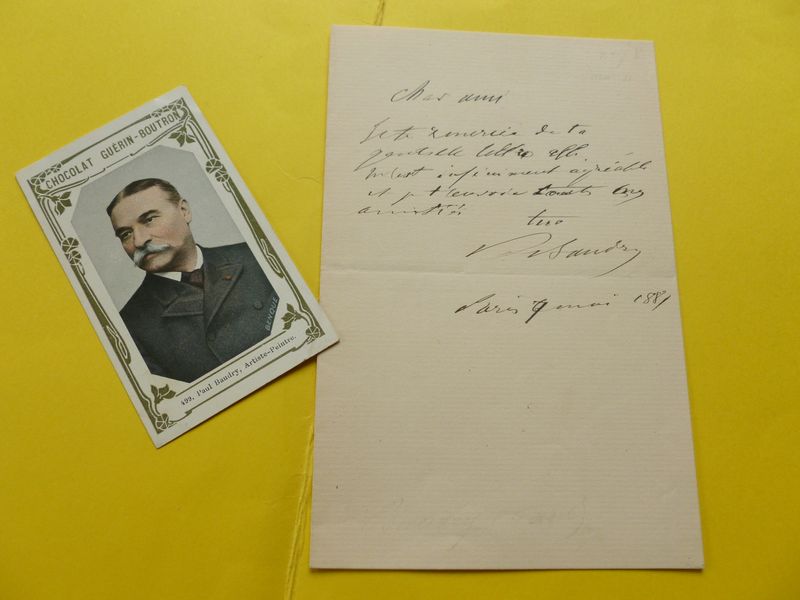 CHOCOLAT GUÉRIN-BOUTRON
BENQUE
499. Paul Baudry, Artiste-Peintre.
Cher ami
Je te remercie de ta
lettre elle
m'est infiniment agréable
et je t'envoie toutes mes
amitiés
tuo
Baudry
Paris 9 mai 1881